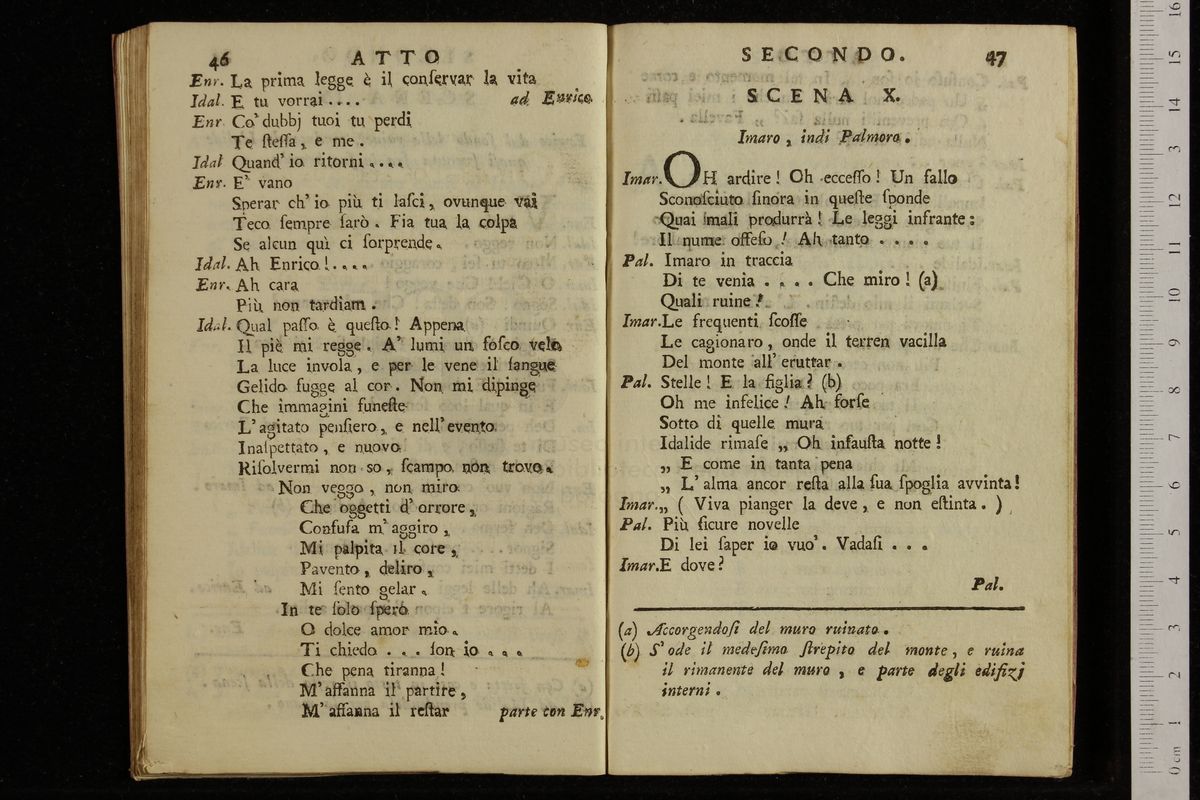 46 ATTO
Enr. La prima legge è il conſervar la vita
Idal. E tu vorrai .... ad Enrico.
Enr Co' dubbj tuoi tu perdi
Te ſteſſa, e me.
Idal Quand' io ritorni ....
Enr. E' vano
Sperar ch' io più ti laſci, ovunque vai
Teco ſempre ſarò. Fia tua la colpa
Se alcun quì ci ſorprende.
Idal. Ah Enrico! ....
Enr. Ah cara
Più non tardiam.
Idal. Qual paſſo è queſto! Appena
Il piè mi regge. A' lumi un foſco velo
La luce invola, e per le vene il ſangue
Gelido fugge al cor. Non mi dipinge
Che immagini funeſte
L' agitato penſiero, e nell' evento
Inaſpettato, e nuovo
Riſolvermi non so, ſcampo non trovo.
Non veggo, non miro
Che oggetti d' orrore,
Confuſa m' aggiro,
Mi palpita il core,
Pavento, deliro,
Mi ſento gelar.
In te ſolo ſperò
O dolce amor mio.
Ti chiedo ... ſon io ...
Che pena tiranna!
M' affanna il partire,
M' affanna il reſtar parte con Enr.
SECONDO. 47
SCENA X.
Imaro, indi Palmoro.
Imar. OH ardire! Oh ecceſſo! Un fallo
Sconoſciuto finora in queſte ſponde
Quai mali produrrà! Le leggi infrante:
Il nume offeſo! Ah tanto ....
Pal. Imaro in traccia
Di te venia .... Che miro! (a)
Quali ruine!
Imar. Le frequenti ſcoſſe
Le cagionaro, onde il terren vacilla
Del monte all' eruttar.
Pal. Stelle! E la figlia? (b)
Oh me infelice! Ah forſe
Sotto di quelle mura
Idalide rimaſe „ Oh infauſta notte!
„ E come in tanta pena
„ L' alma ancor reſta alla ſua ſpoglia avvinta!
Imar. „ ( Viva pianger la deve, e non eſtinta. )
Pal. Più ſicure novelle
Di lei ſaper io vuo'. Vadaſi ...
Imar. E dove?
Pal.
(a) Accorgendoſi del muro ruinato.
(b) S' ode il medeſimo ſtrepito del monte, e ruina
il rimanente del muro, e parte degli edifizj
interni.